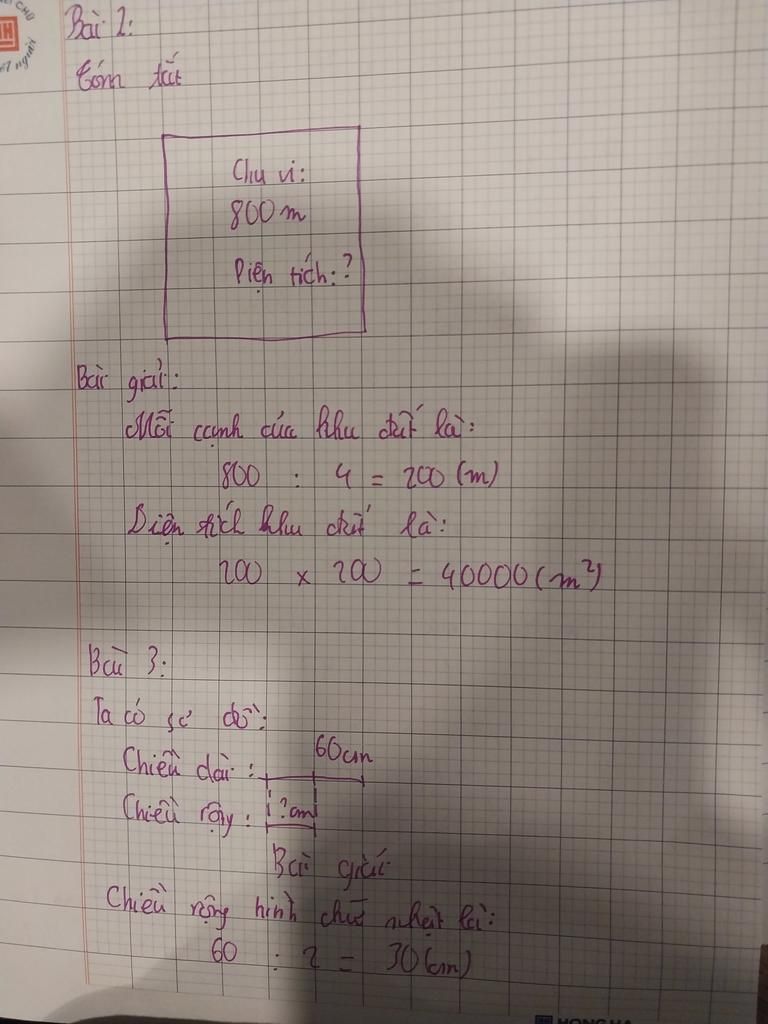 Bài 2:
Tóm tắt
Chu vi:
800 m
Diện tích: ?
Bài giải:
Mỗi cạnh của khu đất là:
800 : 4 = 200 (m)
Diện tích khu đất là:
200 x 200 = 40000 (m²)
Bài 3:
Ta có sơ đồ:
60cm
Chiều dài:
Chiều rộng: ?cm
Bài giải
Chiều rộng hình chữ nhật là:
60 : 2 = 30 (cm)